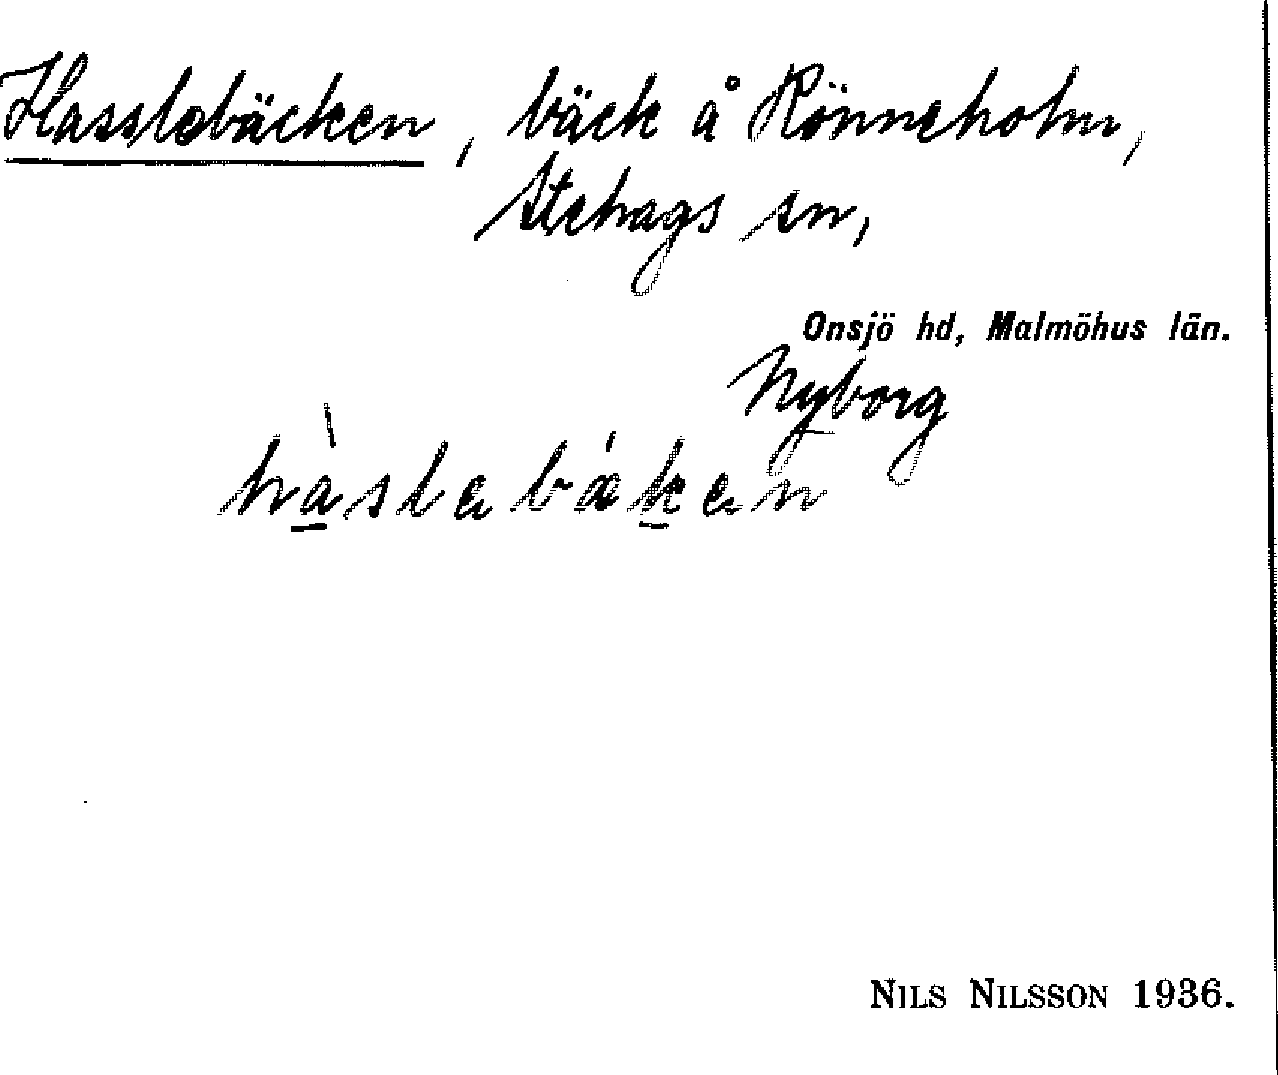 Hasslebäcken, bäck å Rönneholm,
Stehags sn,
Onsjö hd, Malmöhus län.
Nyborg
hàslebǽken
NILS NILSSON 1936.